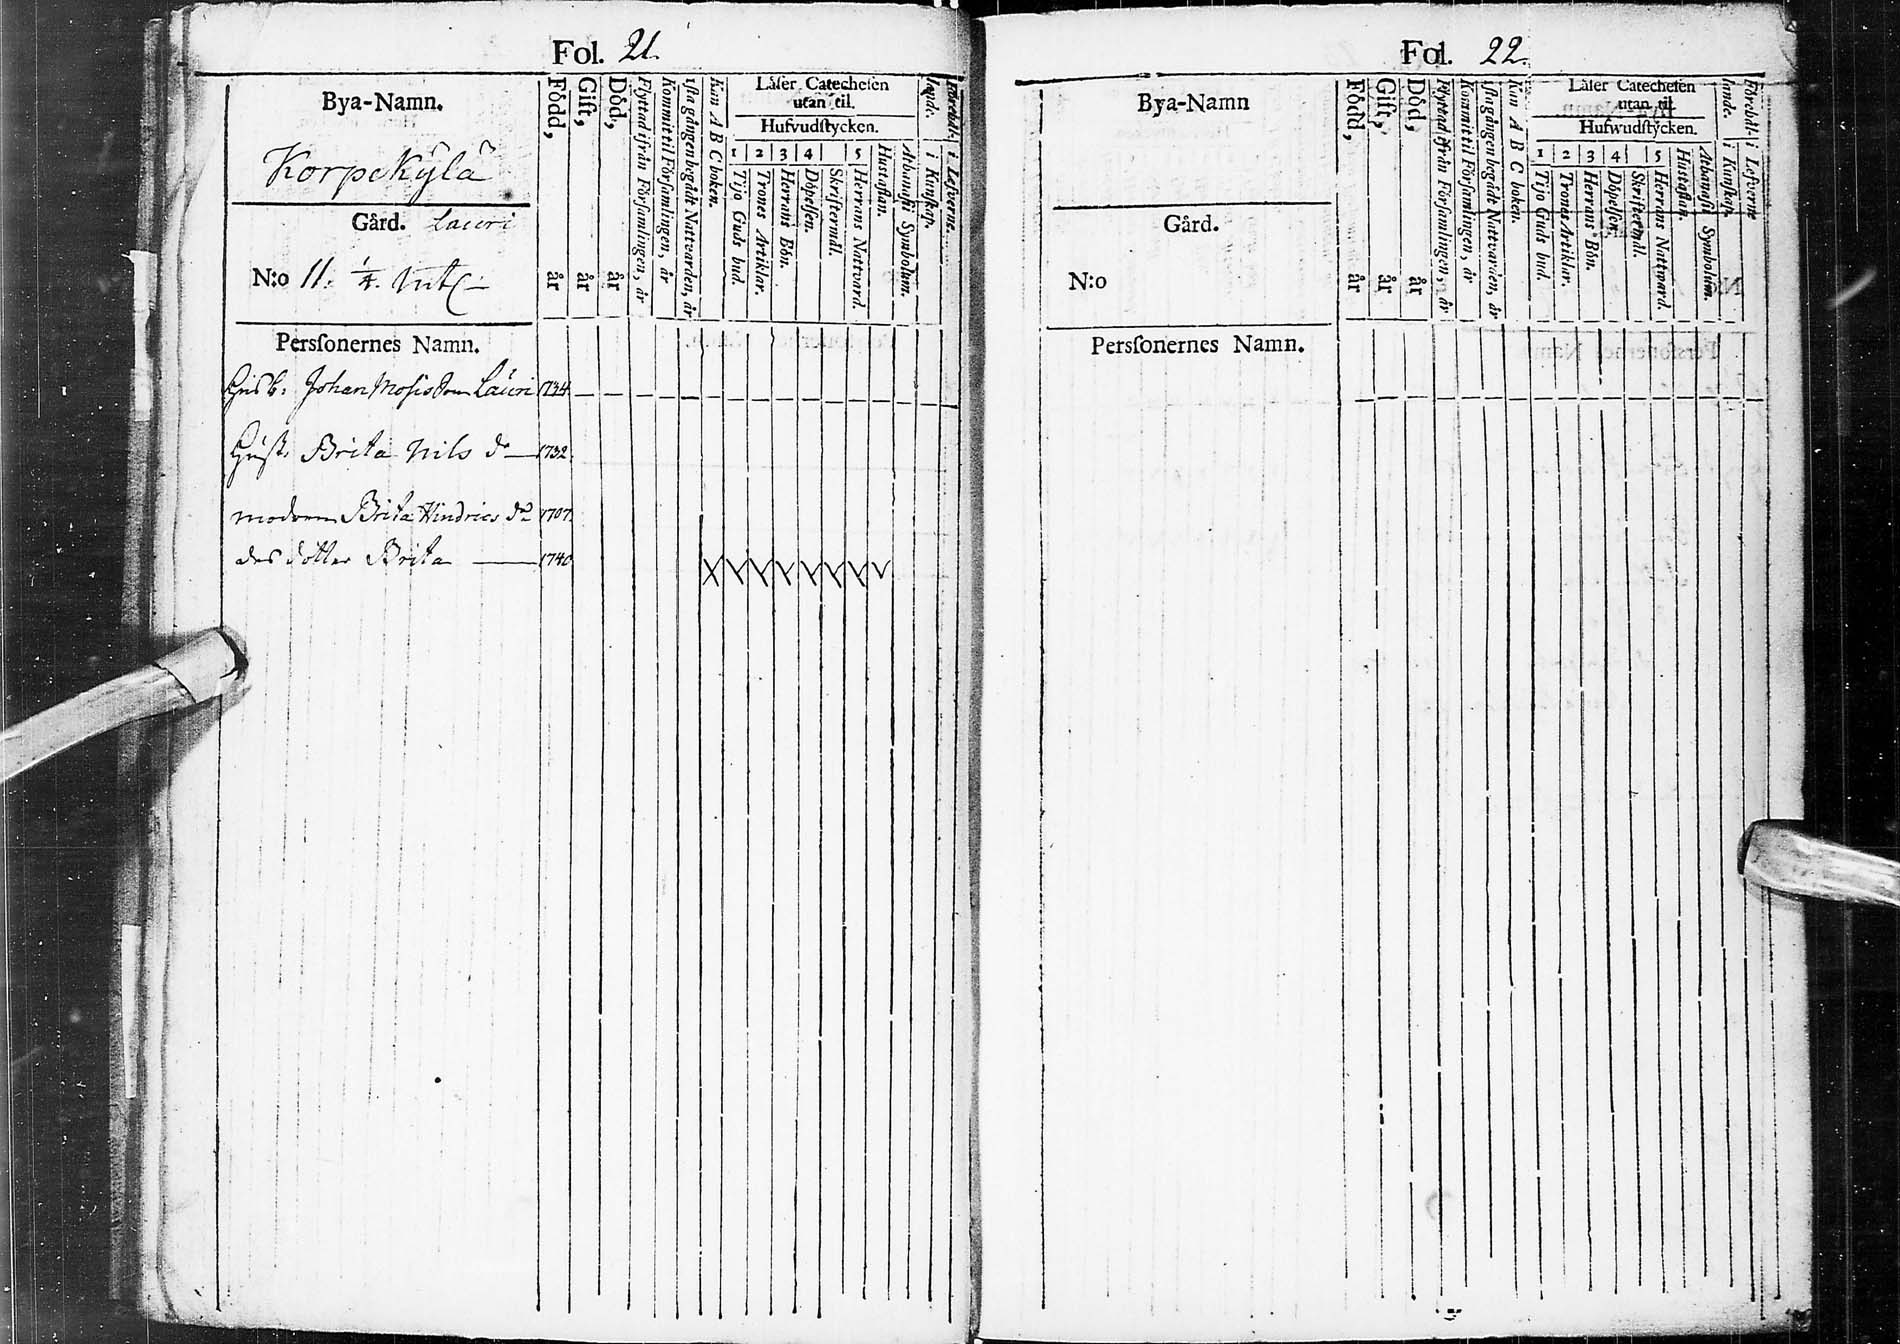 Fol. 21.
Bya-Namn.
Korpekÿlä
Gård. Lauri
N:o 11. 1/4.
Född, år
Gift, år
Död, år
Flyttad ifrån Församlingen, år
Kommit til Församlingen, år
1sta gången begådt Nattvarden, år
Kan A B C boken.
Läser Catechesen
utan til.
Hufvudstycken.
1 2 3 4 5
Tijo Guds bud.
Trones Artiklar.
Herrans Bön.
Döpelsen.
Skriftermål.
Herrans Nattvard.
Hustaflan.
Athanasii Symbolum.
i Kunskap.
i Lefverne.
Persfonernes Namn.
Husb: Johan Mosisson Lauri 1734.
Hust. Brita Nils dr 1732.
modren Brita Hindrics dr 1707.
des dotter Brita 1740
Fol. 22.
Bya-Namn
Gård.
N:o
Född, år
Gift, år
Död, år
Flyttad ifrån Församlingen, år
Kommit til Församlingen, år
1sta gången begådt Nattvarden, år
Kan A B C boken.
Läser Catechesen
utan til.
Hufwudstycken.
1 2 3 4 5
Tijo Guds bud.
Trones Artiklar.
Herrans Bön.
Döpelsen.
Skriftermål.
Herrans Nattvard.
Hustaflan.
Athanasii Symbolum.
i Kunskap.
i Lefverne
Persfonernes Namn.